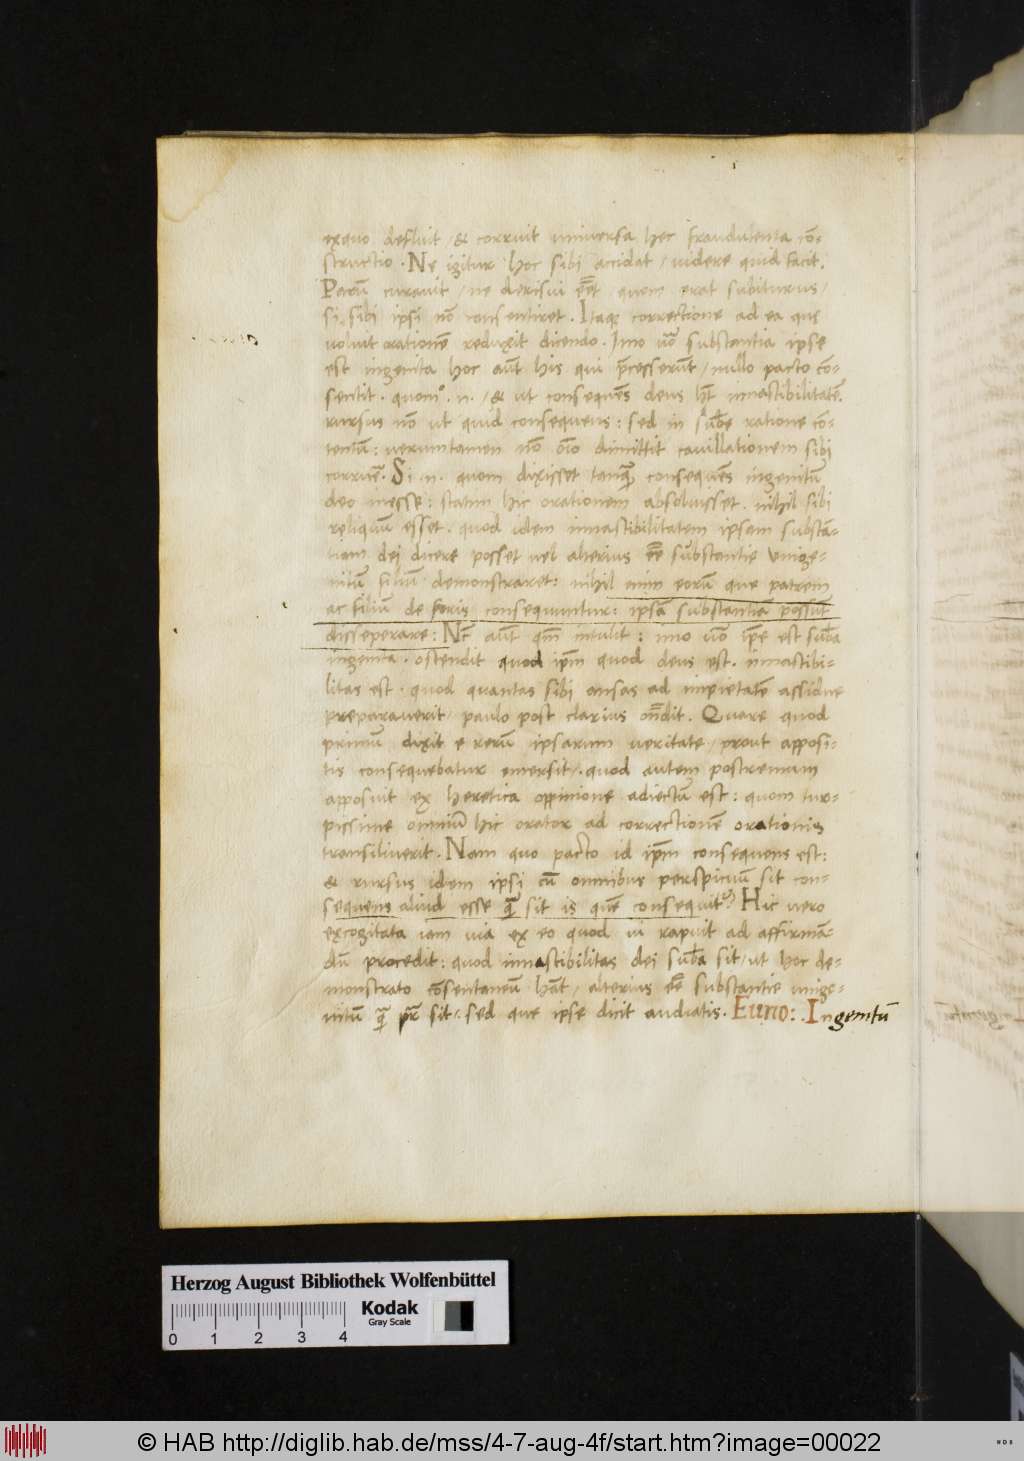 exquo defluit / & corruit universa hec fraudulenta cō-
structio. Ne igitur hoc sibi accidat / videre quid facit.
Parū curavit / ne derisui eēt quom erat subiturus /
si sibi ipsi nō consentiret. Itaqꝫ correctione ad ea quę
voluit orationē reduxit dicendo. Imo vō substantia ipse
est ingenita hoc aūt his qui p̄cesserūt / nullo pacto cō-
sentit. quomº. n. / & ut consequēs deus hēt innascibilitatē.
rursus nō ut quid consequens: sed in sūbe ratione cō-
tentū: veruntamen nō oīo dimittit cavillationem sibi
corruē. Si .n. quom dixisset tanqꝫ consequēs ingenitū
deo inesse: statim hic orationem absolvisset. nihil sibi
reliquū esset. quod idem innascibilitatem ipsam substā-
tiam dei dicere posset vel alterius eēe substantie unige-
nitū filiū demonstraret: nihil enim eorū que patrem
ac filiū de foris consequuntur: ipsā substantiā possūt
disseperare: Nc̄ aūt qm̄ intulit: imo vō ip̄e est sūba
ingenita. ostendit quod ip̄m quod deus est. innascibi-
litas est. quod quantas sibi ansas ad impietatē assidue
preparaverit / paulo post clarius on̄dit. Quare quod
primū dixit e rerū ipsarum veritate / prout apposi-
tis consequebatur emersit /. quod autem postremum
apposuit ex heretica oppinione adiectū est: quom tur-
pissime omniū hic orator ad correctionē orationis
transiliverit. Nam quo pacto id ip̄m consequens est:
& rursus idem ipsi cū omnibus perspicuū sit con-
sequens aliud esse qꝫ sit is quē consequit~? Hic vero
excogitata iam via ex eo quod vi rapuit ad affirmā-
dū procedit: quod innascibilitas dei sūba sit / ut hoc de-
monstrato cōsentaneū hāt / alterius eēe substantie unige-
nitū qꝫ pr̄ sit: sed que ipse dicit audiatis. Euno: . Ingenitū
Herzog August Bibliothek Wolfenbüttel
0 1 2 3 4 Kodak
Gray Scale
© HAB http://diglib.hab.de/mss/4-7-aug-4f/start.htm?image=00022